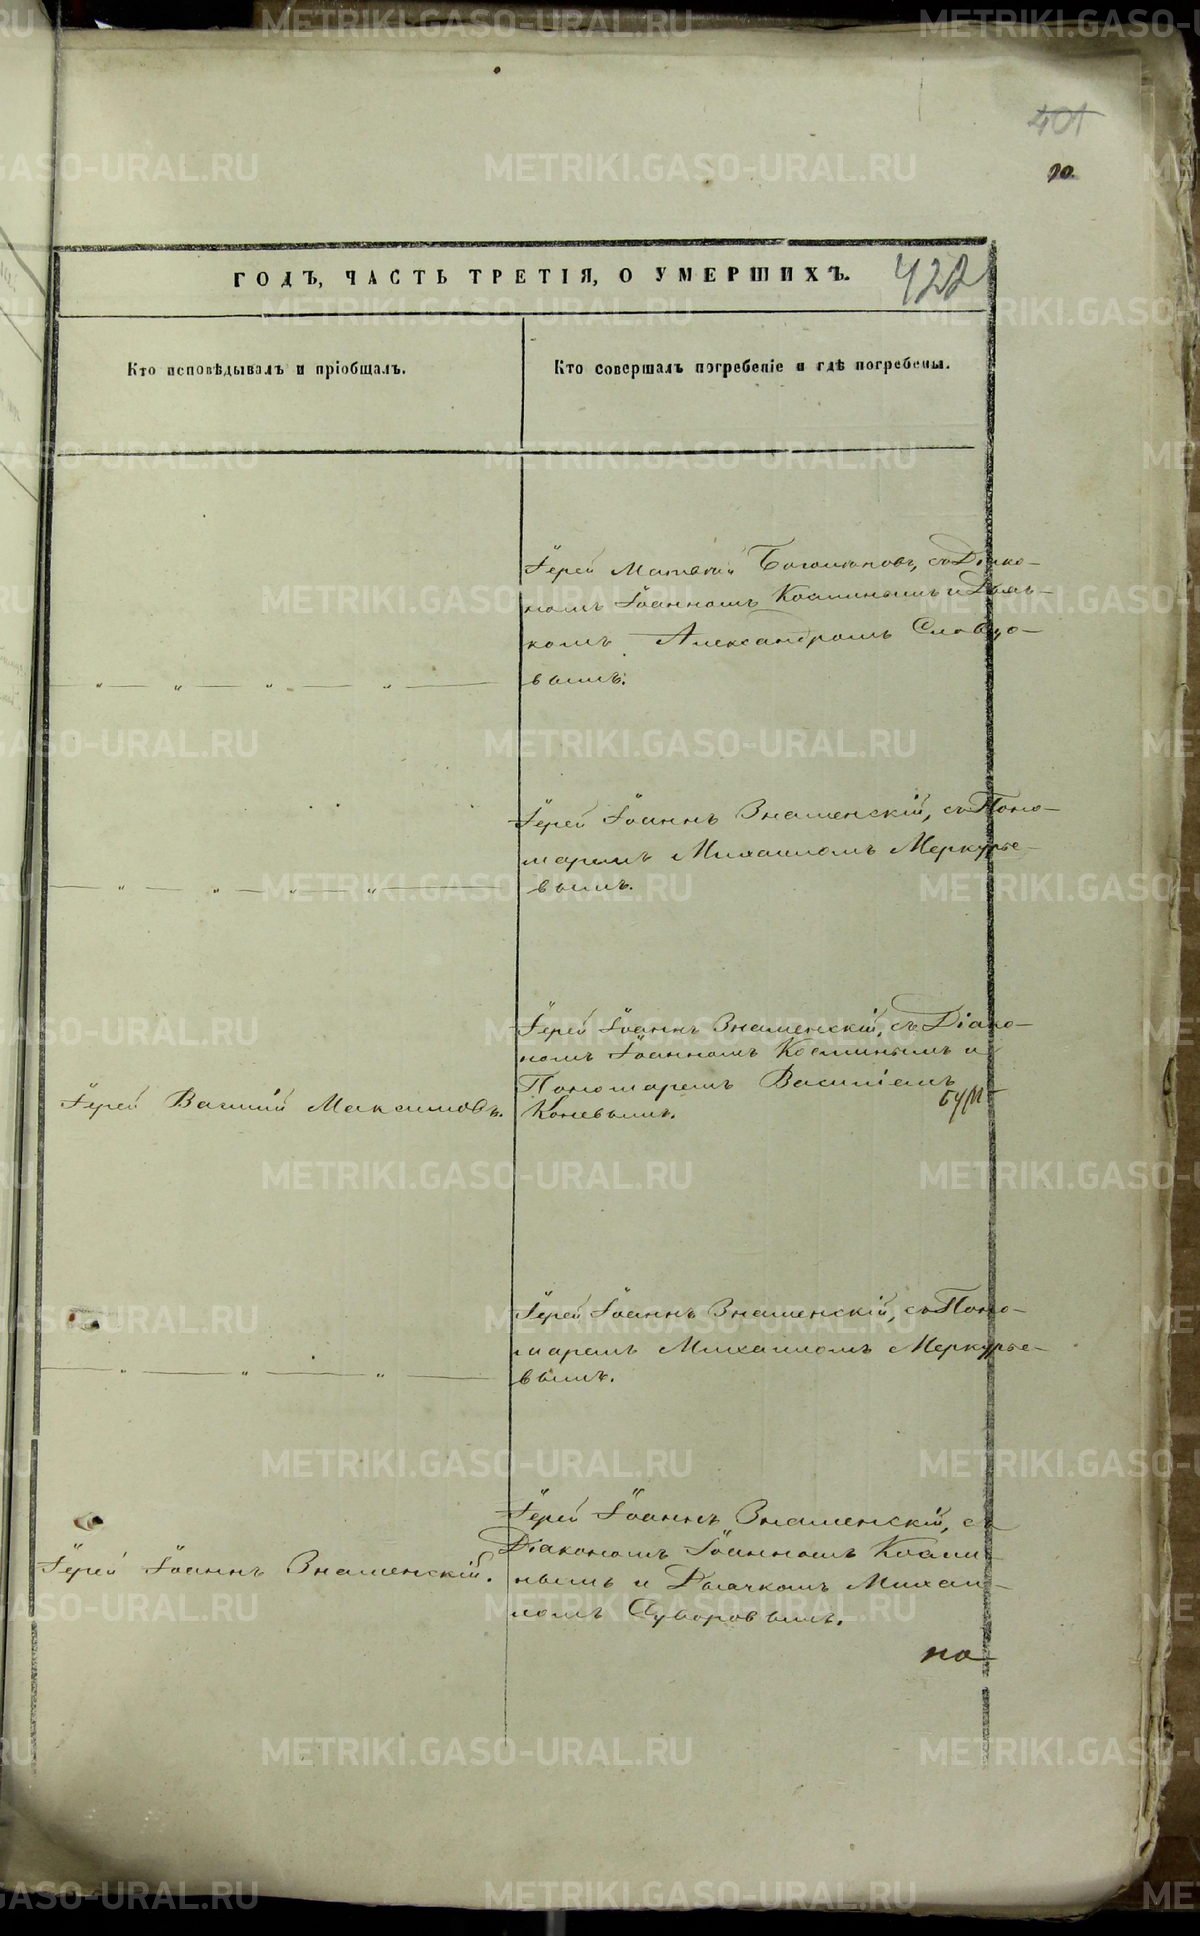 401
90.
ГОДЪ, ЧАСТЬ ТРЕТІЯ, О УМЕРШИХЪ.
422
Кто исповѣдывалъ и пріобщалъ.
Кто совершалъ погребеніе и гдѣ погребены.
Іерей Матвѣй съ Діако-
номъ Іоанномъ Косминымъ и Дьяч-
комъ Александромъ Словцо-
вымъ.
Іерей Іоаннъ Знаменскій, съ Поно-
маремъ Михаиломъ Меркурье-
вымъ.
Іерей Василій Максимовъ.
Іерей Іоаннъ Знаменскій, съ Діако-
номъ Іоанномъ Косминымъ и
Пономаремъ Василіемъ
Коневымъ.
Іерей Іоаннъ Знаменскій, съ Поно-
маремъ Михаиломъ Меркурье-
вымъ.
Іерей Іоаннъ Знаменскій.
Іерей Іоаннъ Знаменскій, съ
Діакономъ Іоанномъ Косми-
нымъ и Дьячкомъ Михаи-
ломъ Суворовымъ.
по
METRIKI.GASO-URAL.RU